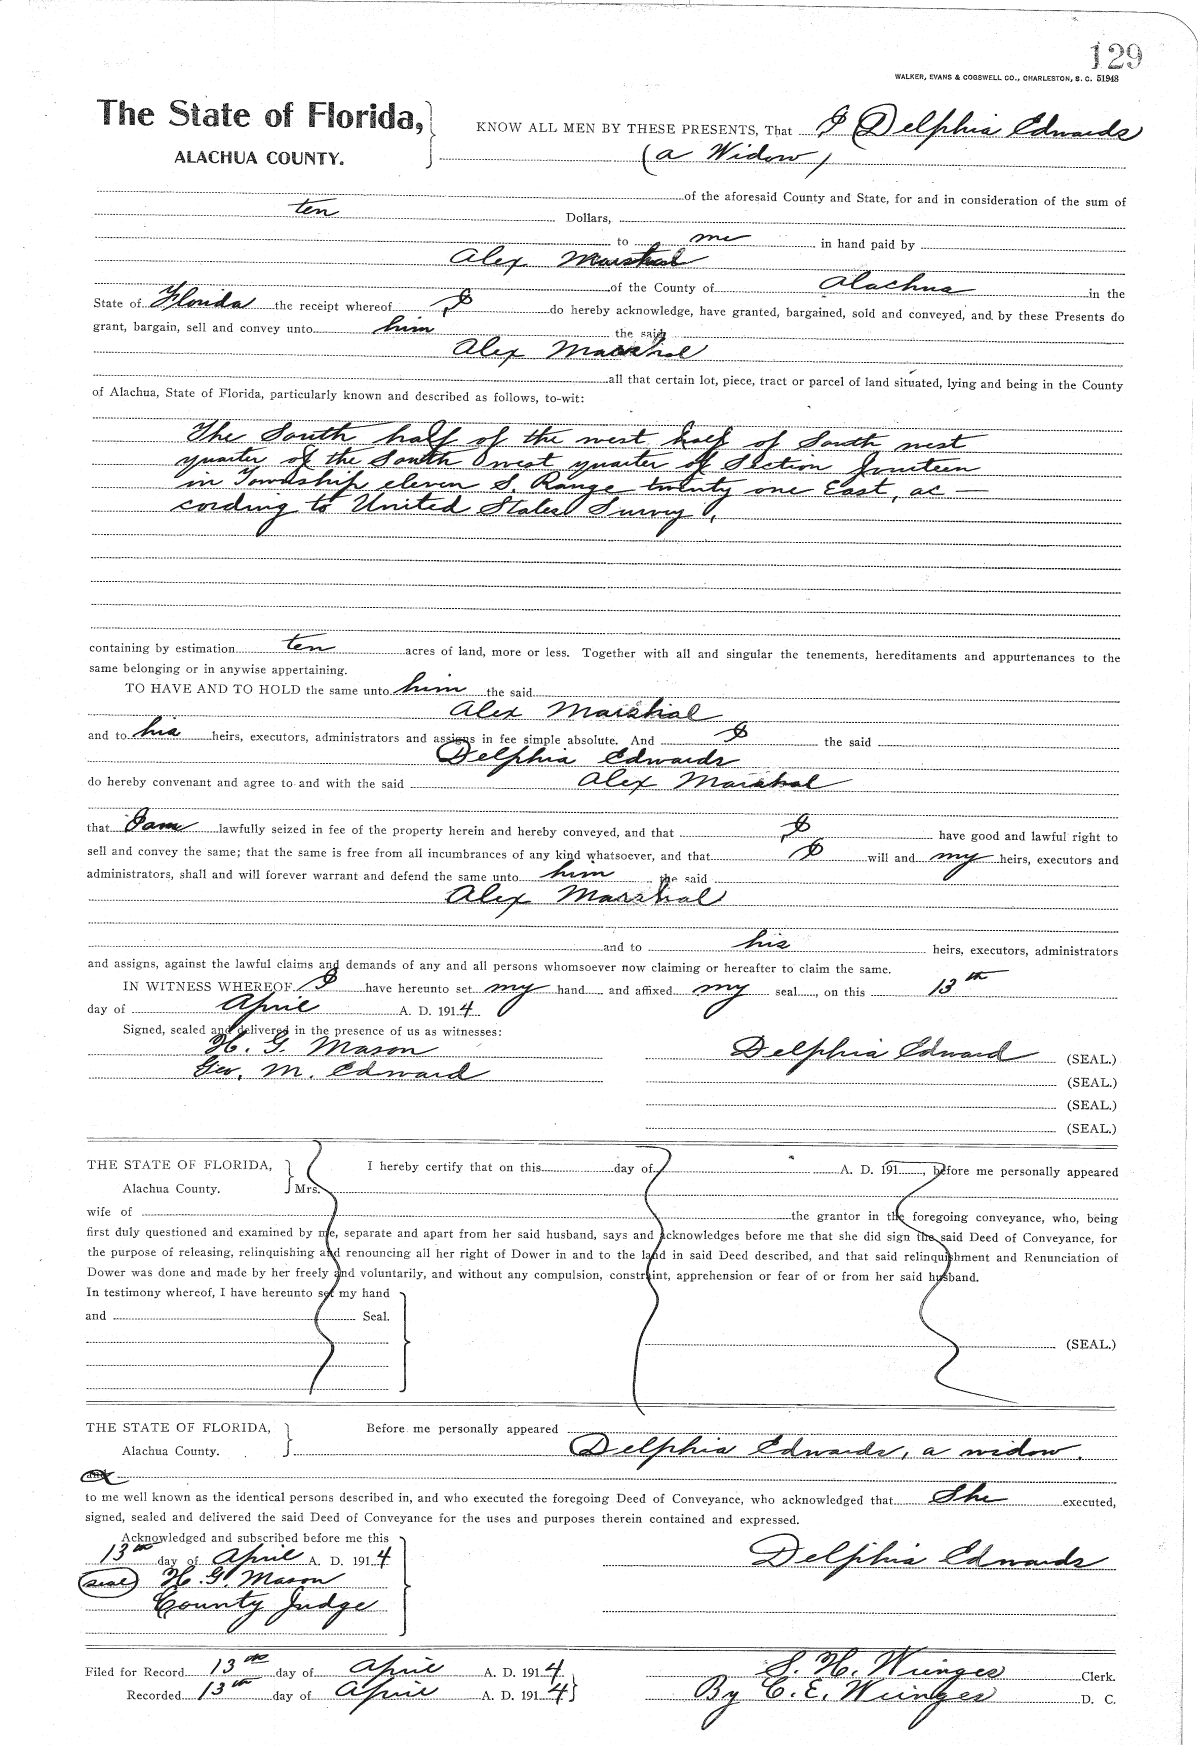 129
WALKER, EVANS & COGSWELL CO., CHARLESTON, S. C. 51948
The State of Florida,
ALACHUA COUNTY.
KNOW ALL MEN BY THESE PRESENTS, That I Delphia Edwards
(a Widow)
of the aforesaid County and State, for and in consideration of the sum of
ten Dollars,
to me in hand paid by
Alex Marshal
of the County of Alachua in the
State of Florida the receipt whereof I do hereby acknowledge, have granted, bargained, sold and conveyed, and by these Presents do
grant, bargain, sell and convey unto him the said
Alex Marshal
all that certain lot, piece, tract or parcel of land situated, lying and being in the County
of Alachua, State of Florida, particularly known and described as follows, to-wit:
The South half of the west half of South west
quarter of the South west quarter of Section fourteen
in Township eleven S. Range twenty one East, ac-
cording to United States Survey,
containing by estimation ten acres of land, more or less. Together with all and singular the tenements, hereditaments and appurtenances to the
same belonging or in anywise appertaining.
TO HAVE AND TO HOLD the same unto him the said
Alex Marshal
and to his heirs, executors, administrators and assigns in fee simple absolute. And I the said
Delphia Edwards
do hereby convenant and agree to and with the said Alex Marshal
that I am lawfully seized in fee of the property herein and hereby conveyed, and that I have good and lawful right to
sell and convey the same; that the same is free from all incumbrances of any kind whatsoever, and that I will and my heirs, executors and
administrators, shall and will forever warrant and defend the same unto him the said
Alex Marshal
and to his heirs, executors, administrators
and assigns, against the lawful claims and demands of any and all persons whomsoever now claiming or hereafter to claim the same.
IN WITNESS WHEREOF I have hereunto set my hand and affixed my seal, on this 13th
day of April A. D. 1914
Signed, sealed and delivered in the presence of us as witnesses:
H. G. Mason
Geo. M. Edward
Delphia Edward (SEAL.)
(SEAL.)
(SEAL.)
(SEAL.)
THE STATE OF FLORIDA,
Alachua County.
I hereby certify that on this day of A. D. 191 , before me personally appeared
Mrs.
wife of the grantor in the foregoing conveyance, who, being
first duly questioned and examined by me, separate and apart from her said husband, says and acknowledges before me that she did sign the said Deed of Conveyance, for
the purpose of releasing, relinquishing and renouncing all her right of Dower in and to the land in said Deed described, and that said relinquishment and Renunciation of
Dower was done and made by her freely and voluntarily, and without any compulsion, constraint, apprehension or fear of or from her said husband.
In testimony whereof, I have hereunto set my hand
and Seal.
(SEAL.)
THE STATE OF FLORIDA,
Alachua County.
Before me personally appeared
Delphia Edwards, a widow.
and
to me well known as the identical persons described in, and who executed the foregoing Deed of Conveyance, who acknowledged that She executed,
signed, sealed and delivered the said Deed of Conveyance for the uses and purposes therein contained and expressed.
Acknowledged and subscribed before me this
13th day of April A. D. 1914
(seal) H. G. Mason
County Judge
Delphia Edwards
Filed for Record 13th day of April A. D. 1914
Recorded 13th day of April A. D. 1914
S. H. Wienges Clerk.
By C. E. Wienges D. C.